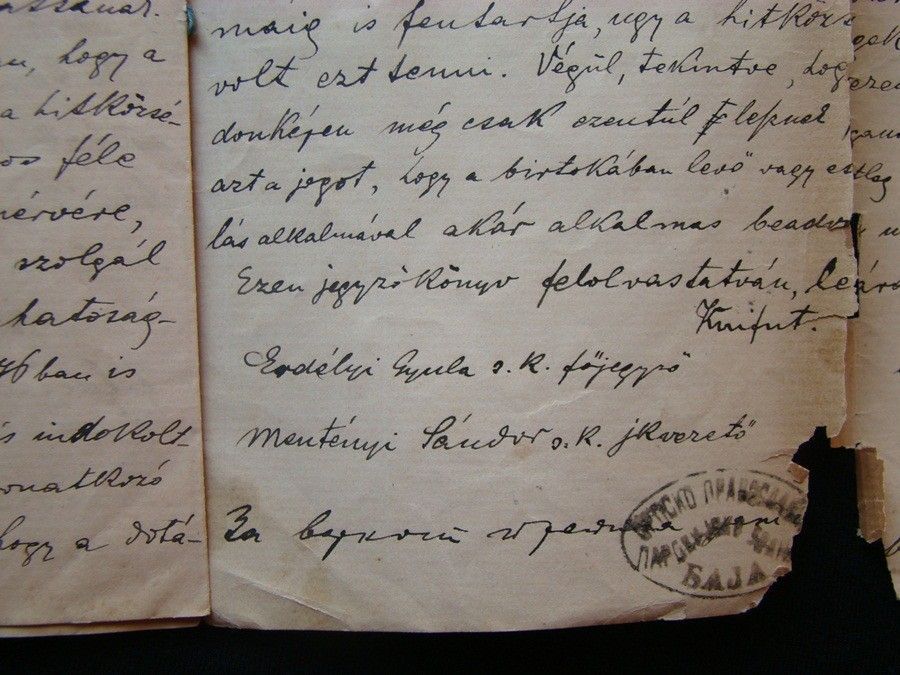 n, hogy a
a hitközsé-
os féle
nérvére,
szolgál
hatóság-
76ban is
is indokolt-
onatkozó
hogy a dotá-
maig is fentartja, ugy a hitközs
volt ezt tenni. Végül, tekintve, hog
donképen még csak ezentúl lépnek
azt a jogot, hogy a birtokában levő vagy esetleg
lás alkalmával akár alkalmas beadv
Ezen jegyzőkönyv felolvastatván, leára
Kmft.
Erdélyi Gyula s.k. főjegyző
Mentényi Sándor s.k. jkvezető
За
СРПСКО ПРАВОСЛАВ
БАЈА